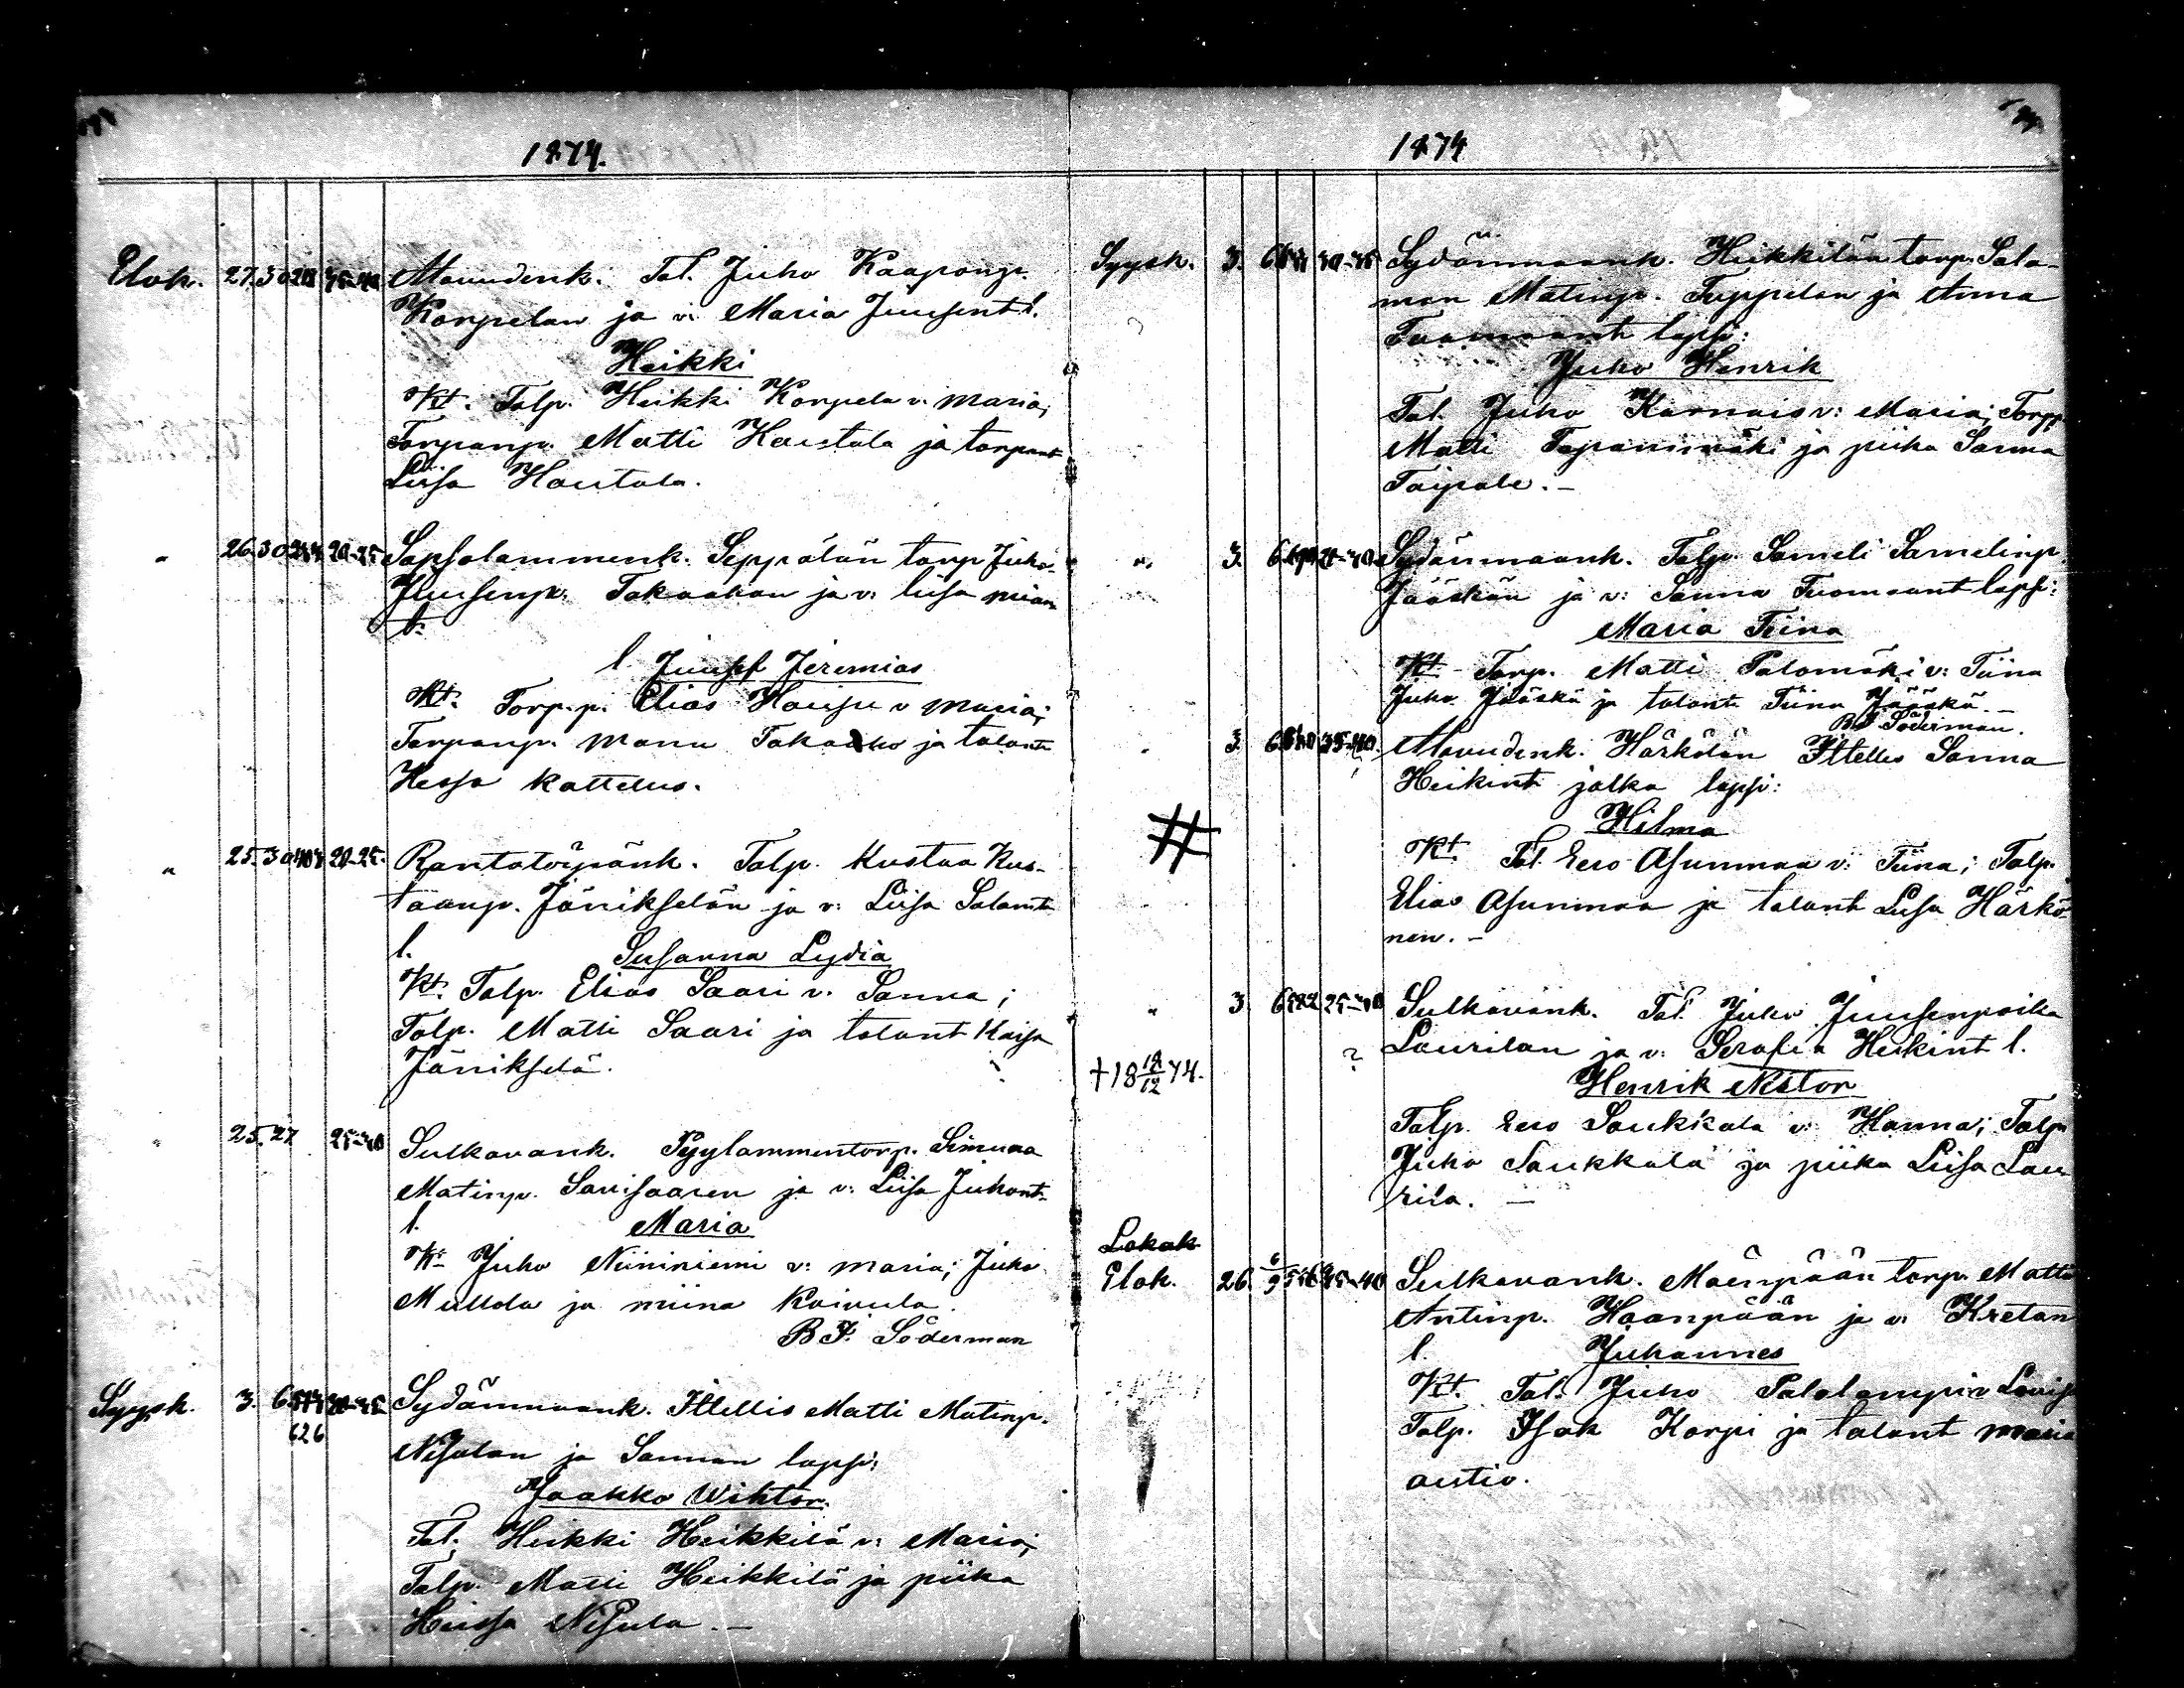 1874.
Elok. 27. 30 35-40 Alavudenk. Tal. Juho Kaaponp.
Korpelan ja v: Maria Juusent l.
Heikki
Kt. Talp. Heikki Korpela v. Maria;
Torpanp. Matti Hautala ja torpant
Liisa Hautala.
" 26. 30 20-25 Sapsalammenk. Seppälän torp Juho
Juusenp. Takaahon ja v: Liisa
l Juusef Jeremias
Kt. Torp.p. Elias v Maria;
Torpanp. Manu Takaaho ja talont
Hessa Kattelus.
" 25. 30 20-25. Rantatöysänk. Talp. Kustaa Kus-
taanp. Jänikselän ja v: Liisa Salomt
l. Susanna Lydia
Kt. Talp. Elias Saari v. Sanna;
Talp. Matti Saari ja talont Kaisa
Jänikselä.
" 25. 27 25-30 Sulkavank. Pyylammentorp. Simuna
Matinp. Savisaaren ja v: Liisa Juhont.
l. Maria
Kt Juho Niininiemi v: Maria; Juho
Mullola ja Miina Koivula.
B.F. Söderman
Syysk. 3. 6 Sydänmaank. Ittellis Matti Matinp.
626
Nisulan ja Sannan lapsi:
Jaakko Wihtor.
Tal. Heikki Heikkilä v: Maria;
Talp. Matti Heikkilä ja piika
Heissa Nisula. —
1874
Syysk. 3. 6 Sydänmaank. Heikkilän torp. Salo-
mon Matinp. Teppelan ja Anna
Tuomaant lapsi:
Juho Henrik
Tal. Juho Karnais v: Maria; Torpp
Matti Tapaninmäki ja piika Sanna
Taipale. —
" 3. 6 Sydänmaank. Talp. Sameli Samelinp.
Jääskän ja v: Sanna Tuomaant lapsi:
Maria Tiina
Kt - Torp. Matti Palomäki v: Tiina
Juho Jääskä ja talont Tiina Jääskä. —
B.F. Söderman.
" 3. 6 35-40. Alavudenk. Härkösen Ittellis Sanna
Heikint jalka lapsi:
#
Hilma
Kt. Tal. Eero Asunmaa v: Tiina; Talp.
Elias Asunmaa ja talont Liisa Härkö-
nen. —
" 3. 6 582 25-30 Sulkavank. Tal. Juho Juusenpoika
? Laurilan ja v: Serafia Heikint l.
† 18 18/12 74.
Henrik Nestor
Talp. Eero Saukkola v: Hanna; Talp
Juho Saukkala ja piika Liisa Lau
rila. —
Lokak
Elok. 26. 6/9 35-40 Sulkavank. Mäenpään torp. Matti
Antinp. Haanpään ja v: Kretan
l. Juhannes
Kt. Tal. Juho Palolampi v Lovisa
Talp. Isak Korpi ja talont Maria
autio.